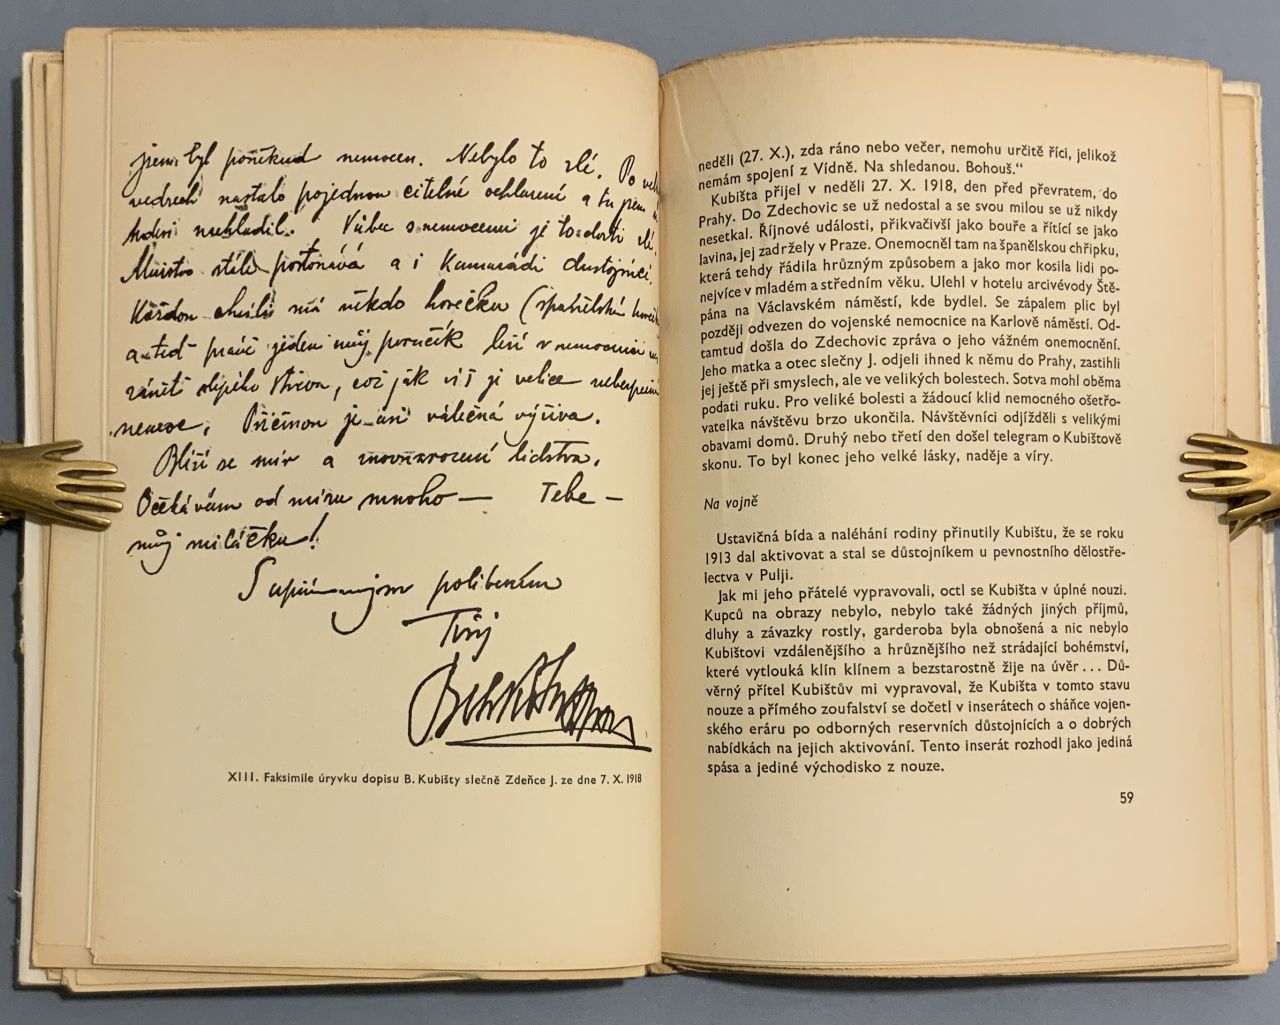 jsem byl poněkud nemocen. Nebylo to zlé. Po
vedrech nastalo pojednou citelné ochlazení a tu jsem
nachladil. Vůbec s nemocemi je to dosti zlé.
Mužstvo stále postonává a i kamarádi důstojníci.
Každou chvíli má někdo horečku (španělská
a teď právě jeden můj poručík leží v nemocnici
zánět slepého střeva, což jak víš je velice nebezpečná
nemoc. Příčinou je asi válečná výživa.
Blíží se mír a znovuzrození lidstva.
Očekávám od míru mnoho — Tebe —
můj miláčku!
S upřímným políbením
Tvůj
XIII. Faksimile úryvku dopisu B. Kubišty slečně Zdeňce J. ze dne 7. X. 1918
neděli (27. X.), zda ráno nebo večer, nemohu určitě říci, jelikož
nemám spojení z Vídně. Na shledanou. Bohouš.“
Kubišta přijel v neděli 27. X. 1918, den před převratem, do
Prahy. Do Zdechovic se už nedostal a se svou milou se už nikdy
nesetkal. Říjnové události, přikvačivší jako bouře a řítící se jako
lavina, jej zadržely v Praze. Onemocněl tam na španělskou chřipku,
která tehdy řádila hrůzným způsobem a jako mor kosila lidi po-
nejvíce v mladém a středním věku. Ulehl v hotelu arcivévody Ště-
pána na Václavském náměstí, kde bydlel. Se zápalem plic byl
později odvezen do vojenské nemocnice na Karlově náměstí. Od-
tamtud došla do Zdechovic zpráva o jeho vážném onemocnění.
Jeho matka a otec slečny J. odjeli ihned k němu do Prahy, zastihli
jej ještě při smyslech, ale ve velikých bolestech. Sotva mohl oběma
podati ruku. Pro veliké bolesti a žádoucí klid nemocného ošetřo-
vatelka návštěvu brzo ukončila. Návštěvníci odjížděli s velikými
obavami domů. Druhý nebo třetí den došel telegram o Kubištově
skonu. To byl konec jeho velké lásky, naděje a víry.
Na vojně
Ustavičná bída a naléhání rodiny přinutily Kubištu, že se roku
1913 dal aktivovat a stal se důstojníkem u pevnostního dělostře-
lectva v Pulji.
Jak mi jeho přátelé vypravovali, octl se Kubišta v úplné nouzi.
Kupců na obrazy nebylo, nebylo také žádných jiných příjmů,
dluhy a závazky rostly, garderoba byla obnošená a nic nebylo
Kubištovi vzdálenějšího a hrůznějšího než strádající bohémství,
které vytlouká klín klínem a bezstarostně žije na úvěr... Dů-
věrný přítel Kubištův mi vypravoval, že Kubišta v tomto stavu
nouze a přímého zoufalství se dočetl v inserátech o sháňce vojen-
ského eráru po odborných reservních důstojnících a o dobrých
nabídkách na jejich aktivování. Tento inserát rozhodl jako jediná
spása a jediné východisko z nouze.
59